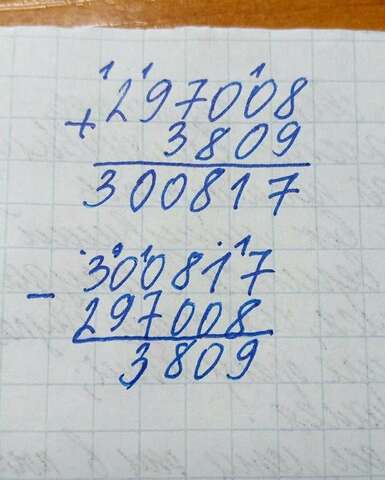 1 1 1
297008
+
3809
300817
9 1 1
300817
-
297008
3809